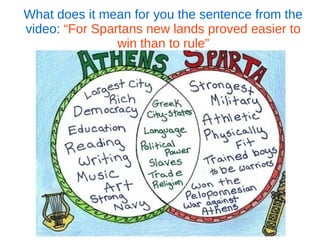 What does it mean for you the sentence from the
video: “For Spartans new lands proved easier to
win than to rule”
ATHENS SPARTA
Largest City
Rich
Democracy
Education
Reading
Writing
Music
Art
Strong
Navy
Greek
City-States
Language
Political
Power
Slaves
Trade
Religion
Strongest
Military
Athletic
Physically
Fit
Trained boys
to be warriors
Won the
Peloponnesian
War against
Athens